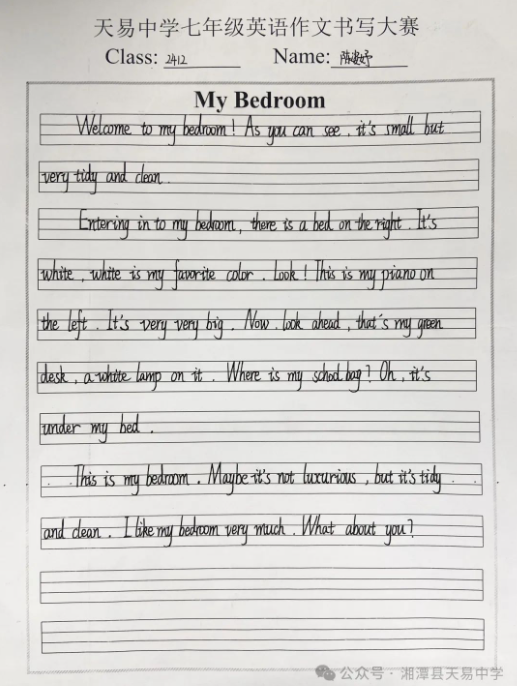 天易中学七年级英语作文书写大赛
Class: 2412 Name: 陈
My Bedroom
Welcome to my bedroom! As you can see, it's small but
very tidy and clean.
Entering in to my bedroom, there is a bed on the right. It's
white, white is my favorite color. Look! This is my piano on
the left. It's very very big. Now look ahead, that's my green
desk, a white lamp on it. Where is my school bag? Oh, it's
under my bed.
This is my bedroom. Maybe it's not luxurious, but it's tidy
and clean. I like my bedroom very much. What about you?
公众号·湘潭县天易中学